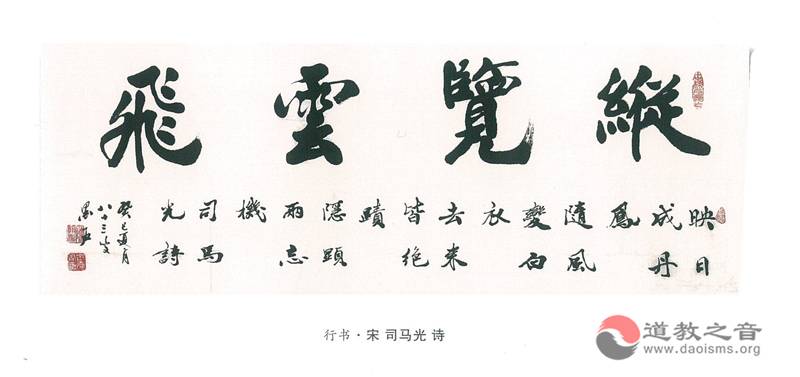 縱覽雲飛
映日
成丹
鳳
隨風
變白
衣
去來
皆絕
蹟
隱顯
兩忘
機
司馬
光詩
癸巳
八十三叟
行书·宋 司马光 诗
道教之音
www.daoisms.org